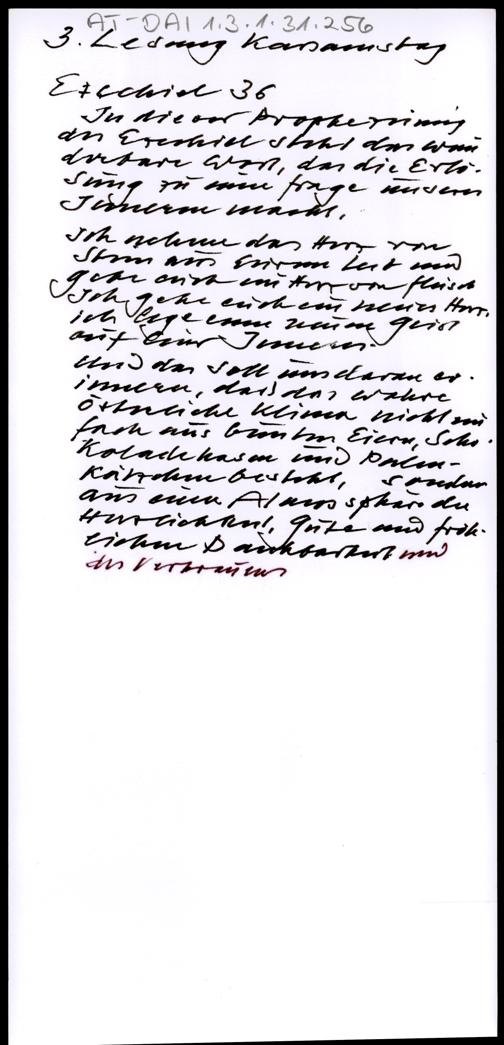 AT-DAI 1.3.1.31.256
3. Lesung Karsamstag
Ezechiel 36
In dieser Prophezeiung
des Ezechiel steht das wun
derbare Wort, das die Erlö-
sung zu einer Frage unseres
Inneren macht.
Ich nehme das Herz von
Stein aus Eurem Leib und
gebe euch ein Herz von Fleisch
Ich gebe euch ein neues Herz,
ich lege einen neuen Geist
auf Euer Inneres.
Und das soll uns daran er-
innern, daß das wahre
österliche Klima nicht ein
fach aus bunten Eiern, Scho-
koladehasen und Palm-
kätzchen besteht, sondern
aus einer Atmosphäre der
Herzlichkeit, Güte und fröh-
lichen Dankbarkeit und
des Vertrauens